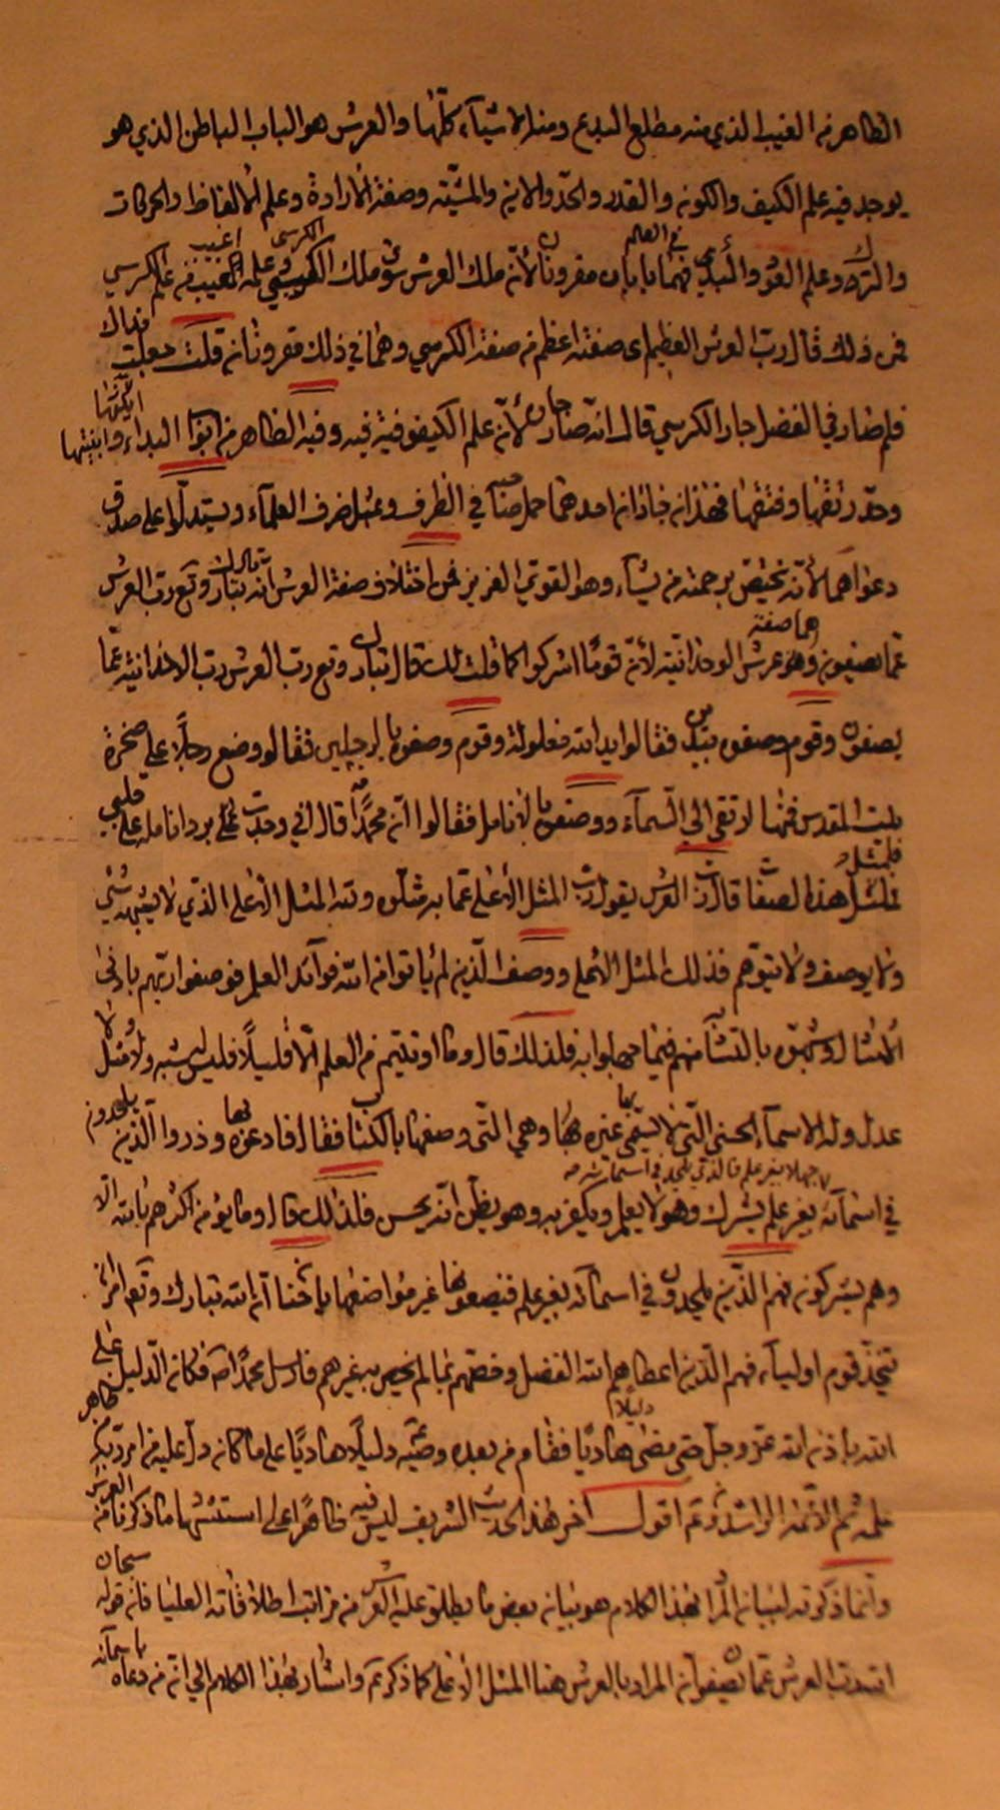 الظاهر من الغيب الذي منه مطلع البدع ومنه الاشياء كلّها والعرش هو الباب الباطن الذي هو
يوجد فيه علم الكيف والكون والقدر والحدّ والاين والمشيّة وصفة الارادة وعلم الالفاظ والحركات
والترك وعلم العود والبدئ فهما في العلم بابان مقرونان لأنّ ملك العرش سوى ملك الكرسي وعلمه اغيب من علم الكرسي
فمن ذلك قال ربّ العرش العظيم اى صفته اعظم من صفة الكرسي وهما في ذلك مقرونان قلت جعلت فداك
فلم صار في الفضل جار الكرسي قال انّه صار جاره لأنّ علم الكيفوفية فيه وفيه الظاهر من ابواب البداء واينيّتها
وحدّ رتقها وفتقها فهذان جاران احدهما حمل صاحبه في الظرف وبمثل صرف العلماء ويستدلّوا على صدق
دعواهما لأنّه يختصّ برحمته من يشاء وهو القوي العزيز فمن اختلاف صفة العرش انّه تبارك وتع ربّ العرش
عمّا يصفون وهو عرش الوحدانيّة لأنّ قومًا اشركوا كما قلت لك قال تبارك وتع ربّ العرش ربّ الوحدانيّة عمّا
يصفون وقوم وصفوه بيدين فقالوا يد الله مغلولة وقوم وصفوه بالرجلين فقالوا وضع رجله على صخرة
بيت المقدس فمنها ارتقى الى السّماء ووصفوه بالانامل فقالوا انّ محمّدًا ص قال اني وجدت برد انامله على قلبي
فلمثل هذه الصفات قال ربّ العرش يقول ربّ المثل الأعلى عمّا به مثّلوه ولله المثل الأعلى الذي لا يشبهه شئ
ولا يوصف ولا يتوهّم فذلك المثل الاعلى ووصف الّذين لم يؤتوا من الله فوائد العلم فوصفوا ربّهم بادنى
الأمثال وشبّهوه بالمتشابه منهم فيما جهلوا به فلذلك قال وما اوتيتم من العلم الّا قليلاً فليس له شبه ولا مثل ولا
عدل وله الاسماء الحسنى الّتي لا يسمّى بها غيره وهي الّتي وصفها بالكتاب فقال فادعوه بها وذروا الّذين يلحدون
في اسمائه بغير علم يشرك وهو لا يعلم ويكفر به وهو يظنّ انّه يحسن فلذلك قال وما يؤمن اكثرهم بالله الّا
وهم مشركون فهم الّذين يلحدون في اسمائه بغير علم فيضعونها غير مواضعها يا حنان انّ الله تبارك وتع امر ان
يتّخذ قوم اولياء فهم الّذين اعطاهم الله الفضل وخصّهم بما لم يخصّ به غيرهم فارسل محمّدًا ص فكان الدّليل على
الله باذن الله عزّ وجلّ حتى مضى دليلاً هاديًا فقام من بعده وصيّه دليلاً هاديًا على ما كان دلّ عليه من امر ربّه من ظاهر
علمه ثم الائمّة الراشدون ع اقول اخر هذا الحديث الشريف ليس فيه ظاهرًا على استشهاد ما ذكرنا من العرش
وانّما ذكرته لبيان انّ المراد بهذا الكلام هو بيان بعض ما يطلق عليه العرش من مراتب اطلاقاته العليا فانّ قوله سبحان
الله ربّ العرش عمّا يصفون انّ المراد بالعرش هنا المثل الأعلى كما ذكر ع واشار بهذا الكلام الى انّ من دعاه باسمائه